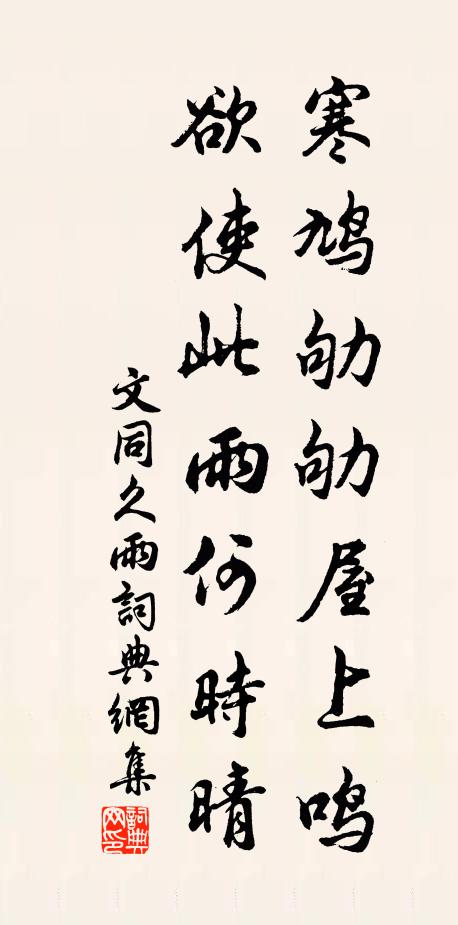 寒鸠劬劬屋上鸣
欲使此雨何時晴
文同久雨詞典網集
詞典網印